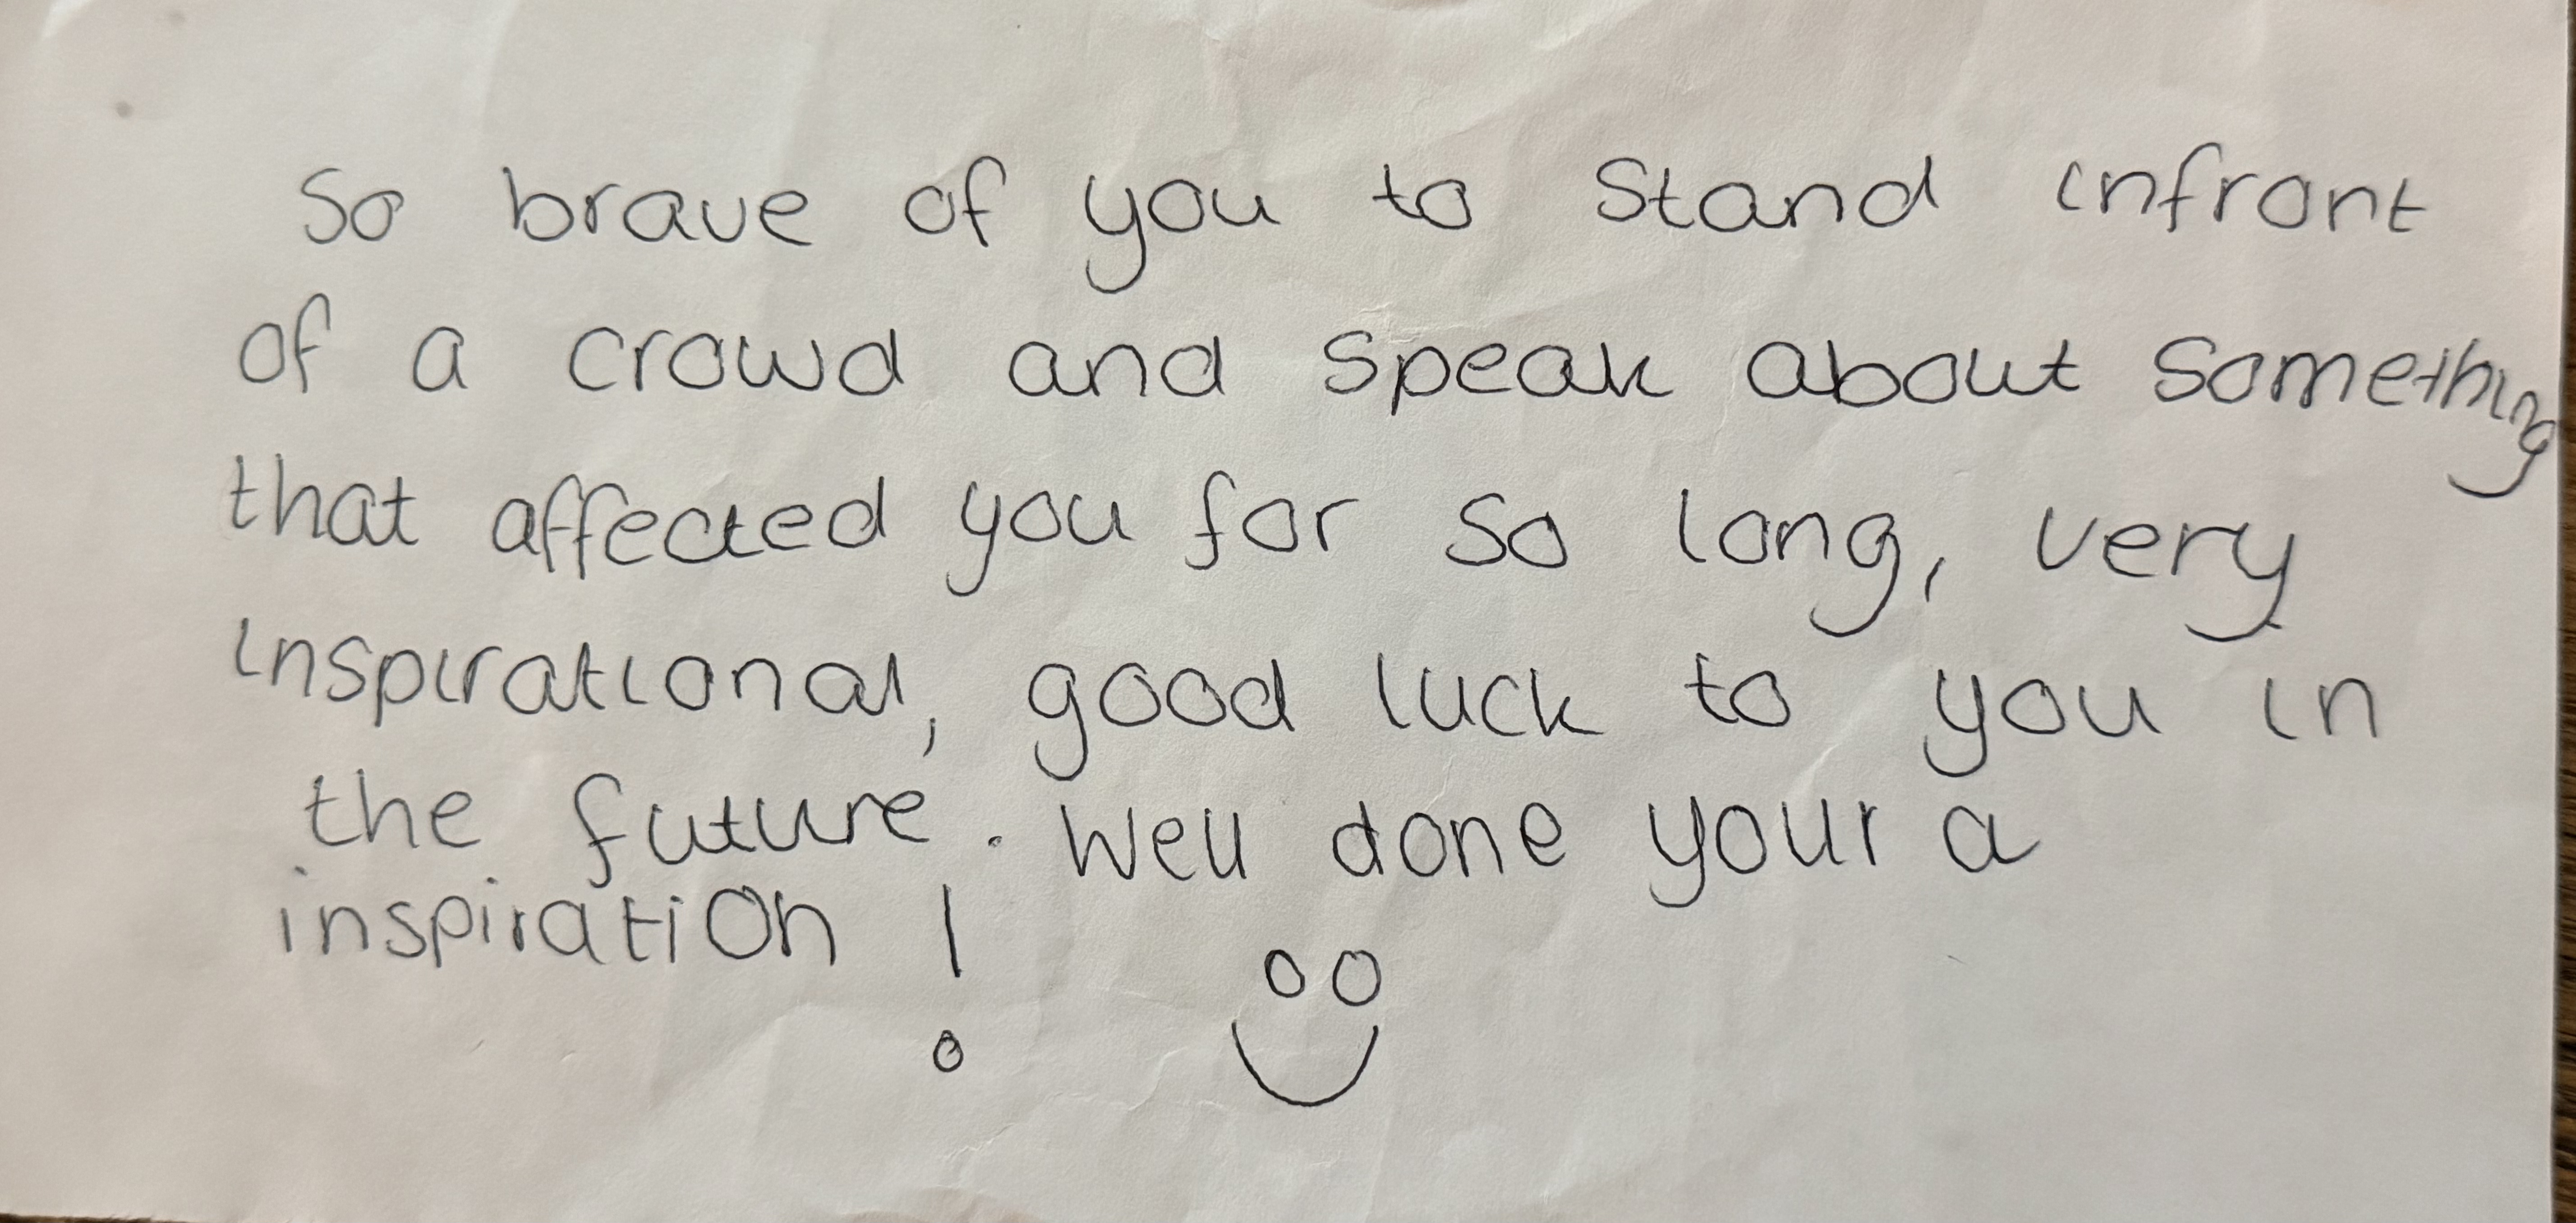 So brave of you to Stand infront
of a crowd and speak about something
that affected you for so long, very
inspirational, good luck to you in
the future. Well done your a
inspiration !